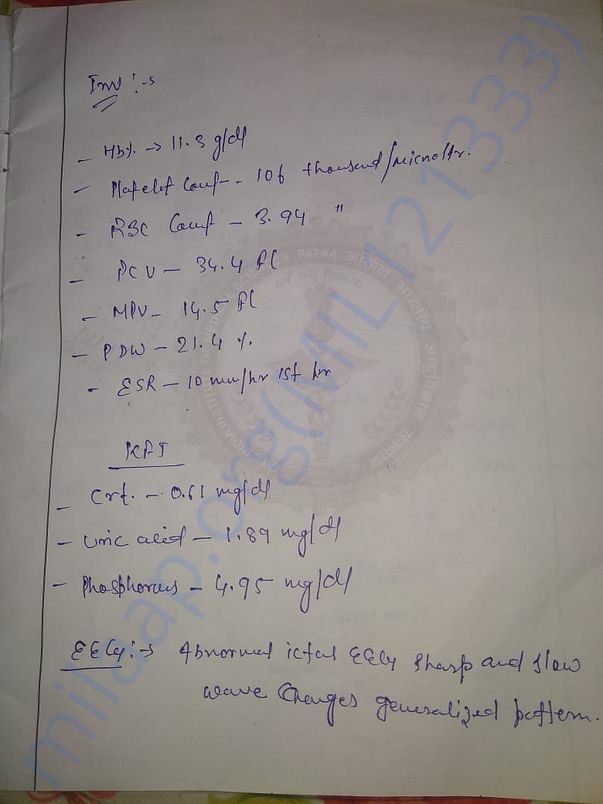 Inv :-s
- Hb% -> 11.3 g/dl
- Platelet Count - 106 thousand/microltr.
- RBC Count - 3.94 "
- PCV - 34.4 fl
- MPV - 14.5 fl
- PDW - 21.4 %
- ESR - 10 mm/hr 1st hr
KFT
- Crt. - 0.61 mg/dl
- Uric acid - 1.89 mg/dl
- Phosphorus - 4.95 mg/dl
EEG :-> Abnormal ictal EEG sharp and slow
wave changes generalized pattern.
milaap.org(MIL121333)
PATNA